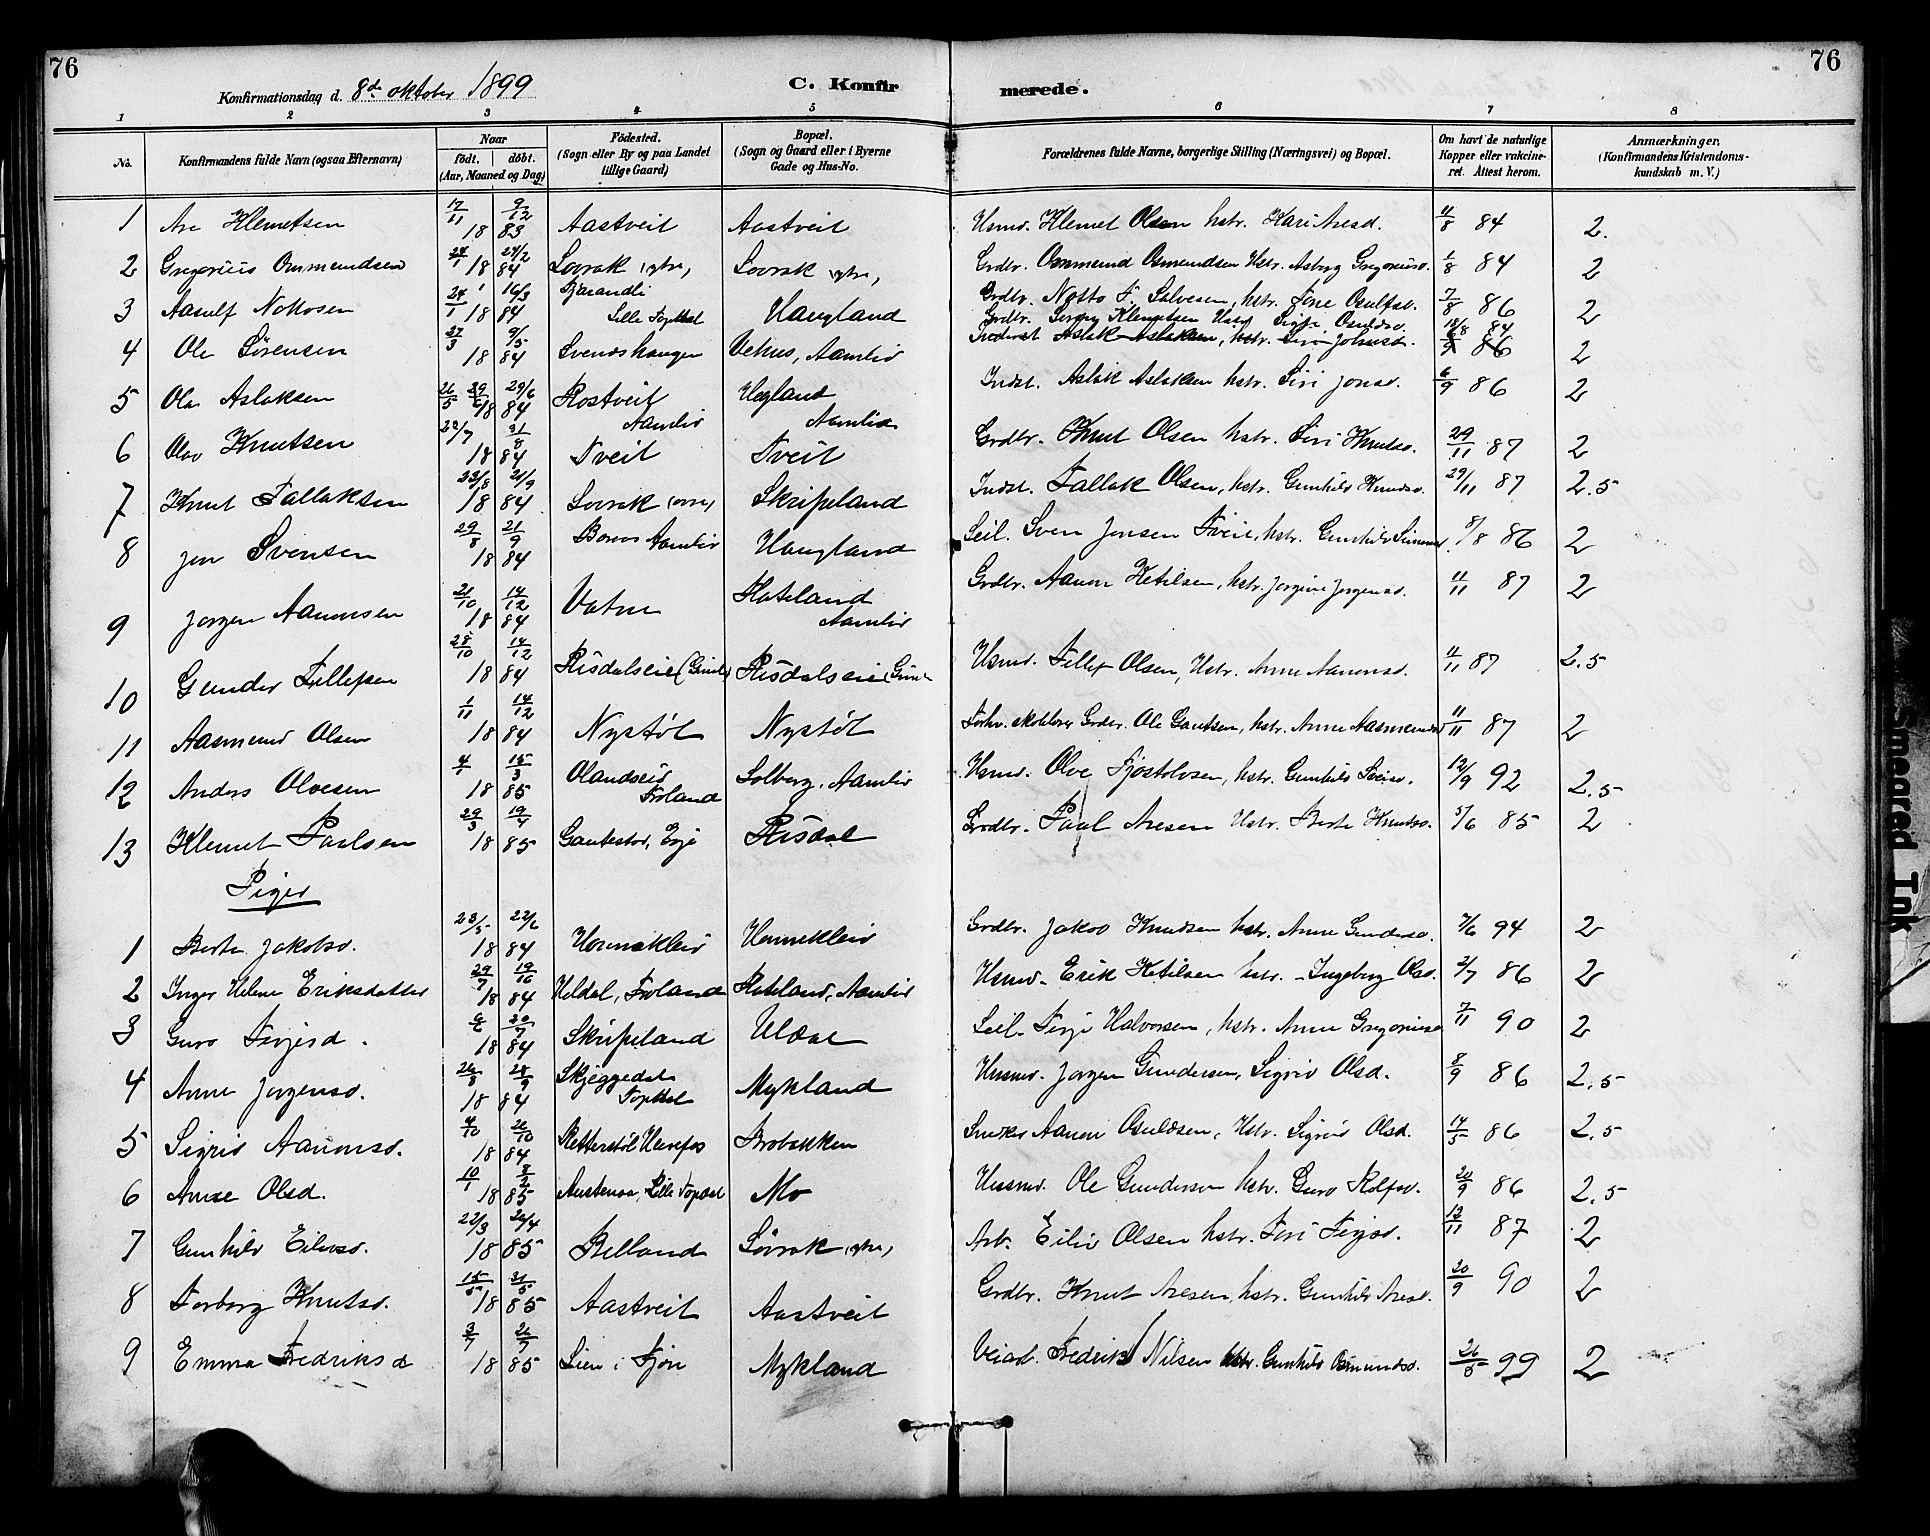 76
76
Konfirmationsdag d. 8de oktober 1899
C. Konfirmerede.
1 2 3 4 5 6 7 8
No.
Konfirmandens fulde Navn (ogsaa Efternavn)
Naar
født. døbt.
(Aar, Maaned og Dag)
Fødested.
(Sogn eller By og paa Landet
tillige Gaard)
Bopæl.
(Sogn og Gaard eller i Byerne
Gade og Hus-No.
Forældrenes fulde Navne, borgerlige Stilling (Næringsvei) og Bopæl.
Om havt de naturlige
Kopper eller vakcine-
ret. Attest herom.
Anmærkninger.
(Konfirmandens Kristendoms-
kundskab m. V.)
1 Are Klemetsen 17/11 9/12 1883 Aastveit Aastveit Husmd. Klemet Olsen hstr. Kari Aresd. 11/8 84 2.
2 Gregorius Ommundsen 24/1 24/2 1884 Lovrak (ytre) Lovrak (ytre) Grdbr. Ommund Osmundsen Hstr. Asborg Gregoriusd. 1/8 84 2
3 Aasulf Nottosen 24/1 16/3 1884 Gjarandli Lille Topdal Haugland Grdbr. Notto T. Salvesen, hstr. Tone Osulfsd. 7/8 86 2
4 Ole Sørensen 27/3 9/5 1884 Svendshaugen Vehus, Aamlid Grdbr. Klemetsen Hstr. 84 2
Inderst Aslak Aslaksen, hstr. Siri Johnsd. 6/9 86
5 Ola Aslaksen 26/5 29/6 29/6 1884 Rostveit Aamlid Hegland Aamlid Indst. Aslak Aslaksen hstr. Siri Jonsd. 6/9 86 2
6 Olav Knutsen 22/7 31/8 1884 Tveit Tveit Grdbr. Knut Olsen hstr. Siri Knutsd. 29/11 87 2
7 Knut Tallaksen 23/8 21/9 1884 Lovrak (ovre) Skripeland Indst. Tallak Olsen, hstr. Gunhild Knudsd. 29/11 87 2.5
8 Jon Svensen 29/8 21/9 1884 Boraas Aamlid Haugland Leil. Sven Jensen Tveit, hstr. Gunhild 5/8 86 2
9 Jorgen Aanonsen 21/10 14/12 1884 Vatne Hateland Aamlid Grdbr. Aanon Ketilsen, hstr. Jorgine Jorgensd. 11/11 87 2
10 Gunder Tellefsen 28/10 14/12 1884 Risdalseie (Gimle) Risdalseie (Gimle Husmd. Tellef Olsen, Hstr. Anne Aanonsd. 11/11 87 2.5
11 Aasmund Olsen 1/11 14/12 1884 Nystøl Nystøl Forhv. skolelærer Grdbr. Ole Gautsen, hstr. Anne Aasmundsd 11/11 87 2
12 Anders Olvesen 4/1 15/3 1885 Olandseid Froland Solberg, Aamlid Husmd. Olve Fjøstolvsen, hstr. Gunhild 12/9 92 2.5
13 Klemet Paulsen 29/3 19/4 1885 Gautestad, Evje Risdal Grdbr. Paul Aresen Hstr. Berte Knutsd. 5/6 85 2
Piger
1 Berte Jakobsd. 23/5 22/6 1884 Hovnekleiv Hovnekleiv Grdbr. Jakob Knudsen hstr. Anne Gundersd. 7/6 94 2
2 Inger Helene Eriksdatter 29/7 19/10 1884 Heldal, Froland Hateland, Aamlid Husmd. Erik Ketilsen hstr. Ingeborg Olsd. 2/7 86 2
3 Guro Terjesd. 6/6 20/7 1884 Skripeland Uldal Leil. Terje Halvorsen, hstr. Anne Gregoriusd 7/11 90 2
4 Anne Jorgensd. 26/8 28/9 1884 Skjeggedal Topdal Mykland Husmd. Jorgen Gundersen, Sigrid Olsd. 8/9 86 2.5
5 Sigrid Aanonsd. 4/10 26/10 1884 Retterstøl Herefos Brobakken Smed Aanon Osuldsen, Hstr. Sigrid Olsd. 14/5 86 2.5
6 Anne Olsd. 10/1 8/2 1885 Austenaa, Lille Topdal Mo Husmd. Ole Gundersen hstr. Guro Rolfsd. 20/9 86 2.5
7 Gunhild Eilivsd. 22/3 26/4 1885 Relland Lovrak (ytre) Arb. Eiliv Olsen hstr. Siri Terjesd. 13/11 87 2
8 Torborg Knutsd. 15/5 31/5 1885 Aastveit Aastveit Grdbr. Knut Aresen, hstr. Gunhild Aresd. 20/9 90 2
9 Emma Fredriksd 3/7 26/7 1885 Lien i Fjøre Mykland Veiarb. Fredrik Nilsen hstr. Gunhild Osmundsd. 26/5 99 2
Smeared Ink